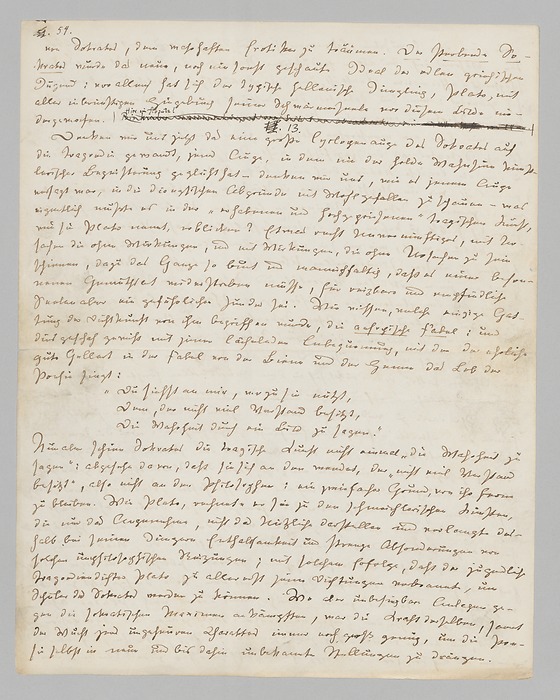 54.
von Sokrates, dem wahrhaften Erotiker zu träumen. Der sterbende So-
krates wurde das neue, noch nie sonst geschaute Ideal der edlen griechischen
Jugend: vor allem hat sich der typische hellenische Jüngling, Plato, mit
aller inbrünstigen Hingebung seiner Schwärmerseele vor diesem Bilde nie-
dergeworfen.
13.
Denken wir uns jetzt das eine große Cyclopenauge des Sokrates auf
die Tragoedie gewandt, jenes Auge, in dem nie der holde Wahnsinn künst-
lerischer Begeisterung geglüht hat – denken wir uns, wie es jenem Auge
versagt war, in die dionysischen Abgründe mit Wohlgefallen zu schauen – was
eigentlich mußte es in der „erhabenen und hochgepriesenen" tragischen Kunst,
wie sie Plato nennt, erblicken? Etwas recht Unvernünftiges, mit Ur-
sachen die ohne Wirkungen, und mit Wirkungen, die ohne Ursachen zu sein
schienen, dazu das Ganze so bunt und mannichfaltig, daß es einer beson-
nenen Gemüthsart widerstreben müsse, für reizbare und empfindliche
Seelen aber ein gefährlicher Zunder sei. Wir wissen, welche einzige Gat-
tung der Dichtkunst von ihm begriffen wurde, die aesopische Fabel: und
dies geschah gewiß mit jener lächelnden Anbequemung, mit der der ehrliche
gute Gellert in der Fabel von der Biene und der Henne das Lob der
Poesie singt:
„Du siehst an mir, wozu sie nützt,
Dem, der nicht viel Verstand besitzt,
Die Wahrheit durch ein Bild zu sagen."
Nun aber schien Sokrates die tragische Kunst nicht einmal „die Wahrheit zu
sagen": abgesehn davon, daß sie sich an den wendet, der „nicht viel Verstand
besitzt", also nicht an den Philosophen: ein zweifacher Grund, von ihr fern
zu bleiben. Wie Plato, rechnete er sie zu den schmeichlerischen Künsten,
die nur das Angenehme, nicht das Nützliche darstellen und verlangte des-
halb bei seinen Jüngern Enthaltsamkeit und strenge Absonderung von
solchen unphilosophischen Reizungen; mit solchem Erfolge, daß der jugendliche
Tragoediendichter Plato zu allererst seine Dichtungen verbrannte, um
Schüler des Sokrates werden zu können. Wo aber unbesiegbare Anlagen ge-
gen die sokratischen Maximen ankämpften, war die Kraft derselben, sammt
der Wucht jenes ungeheuren Charakters immer noch groß genug, um die Poe-
sie selbst in neue und bis dahin unbekannte Stellungen zu drängen.